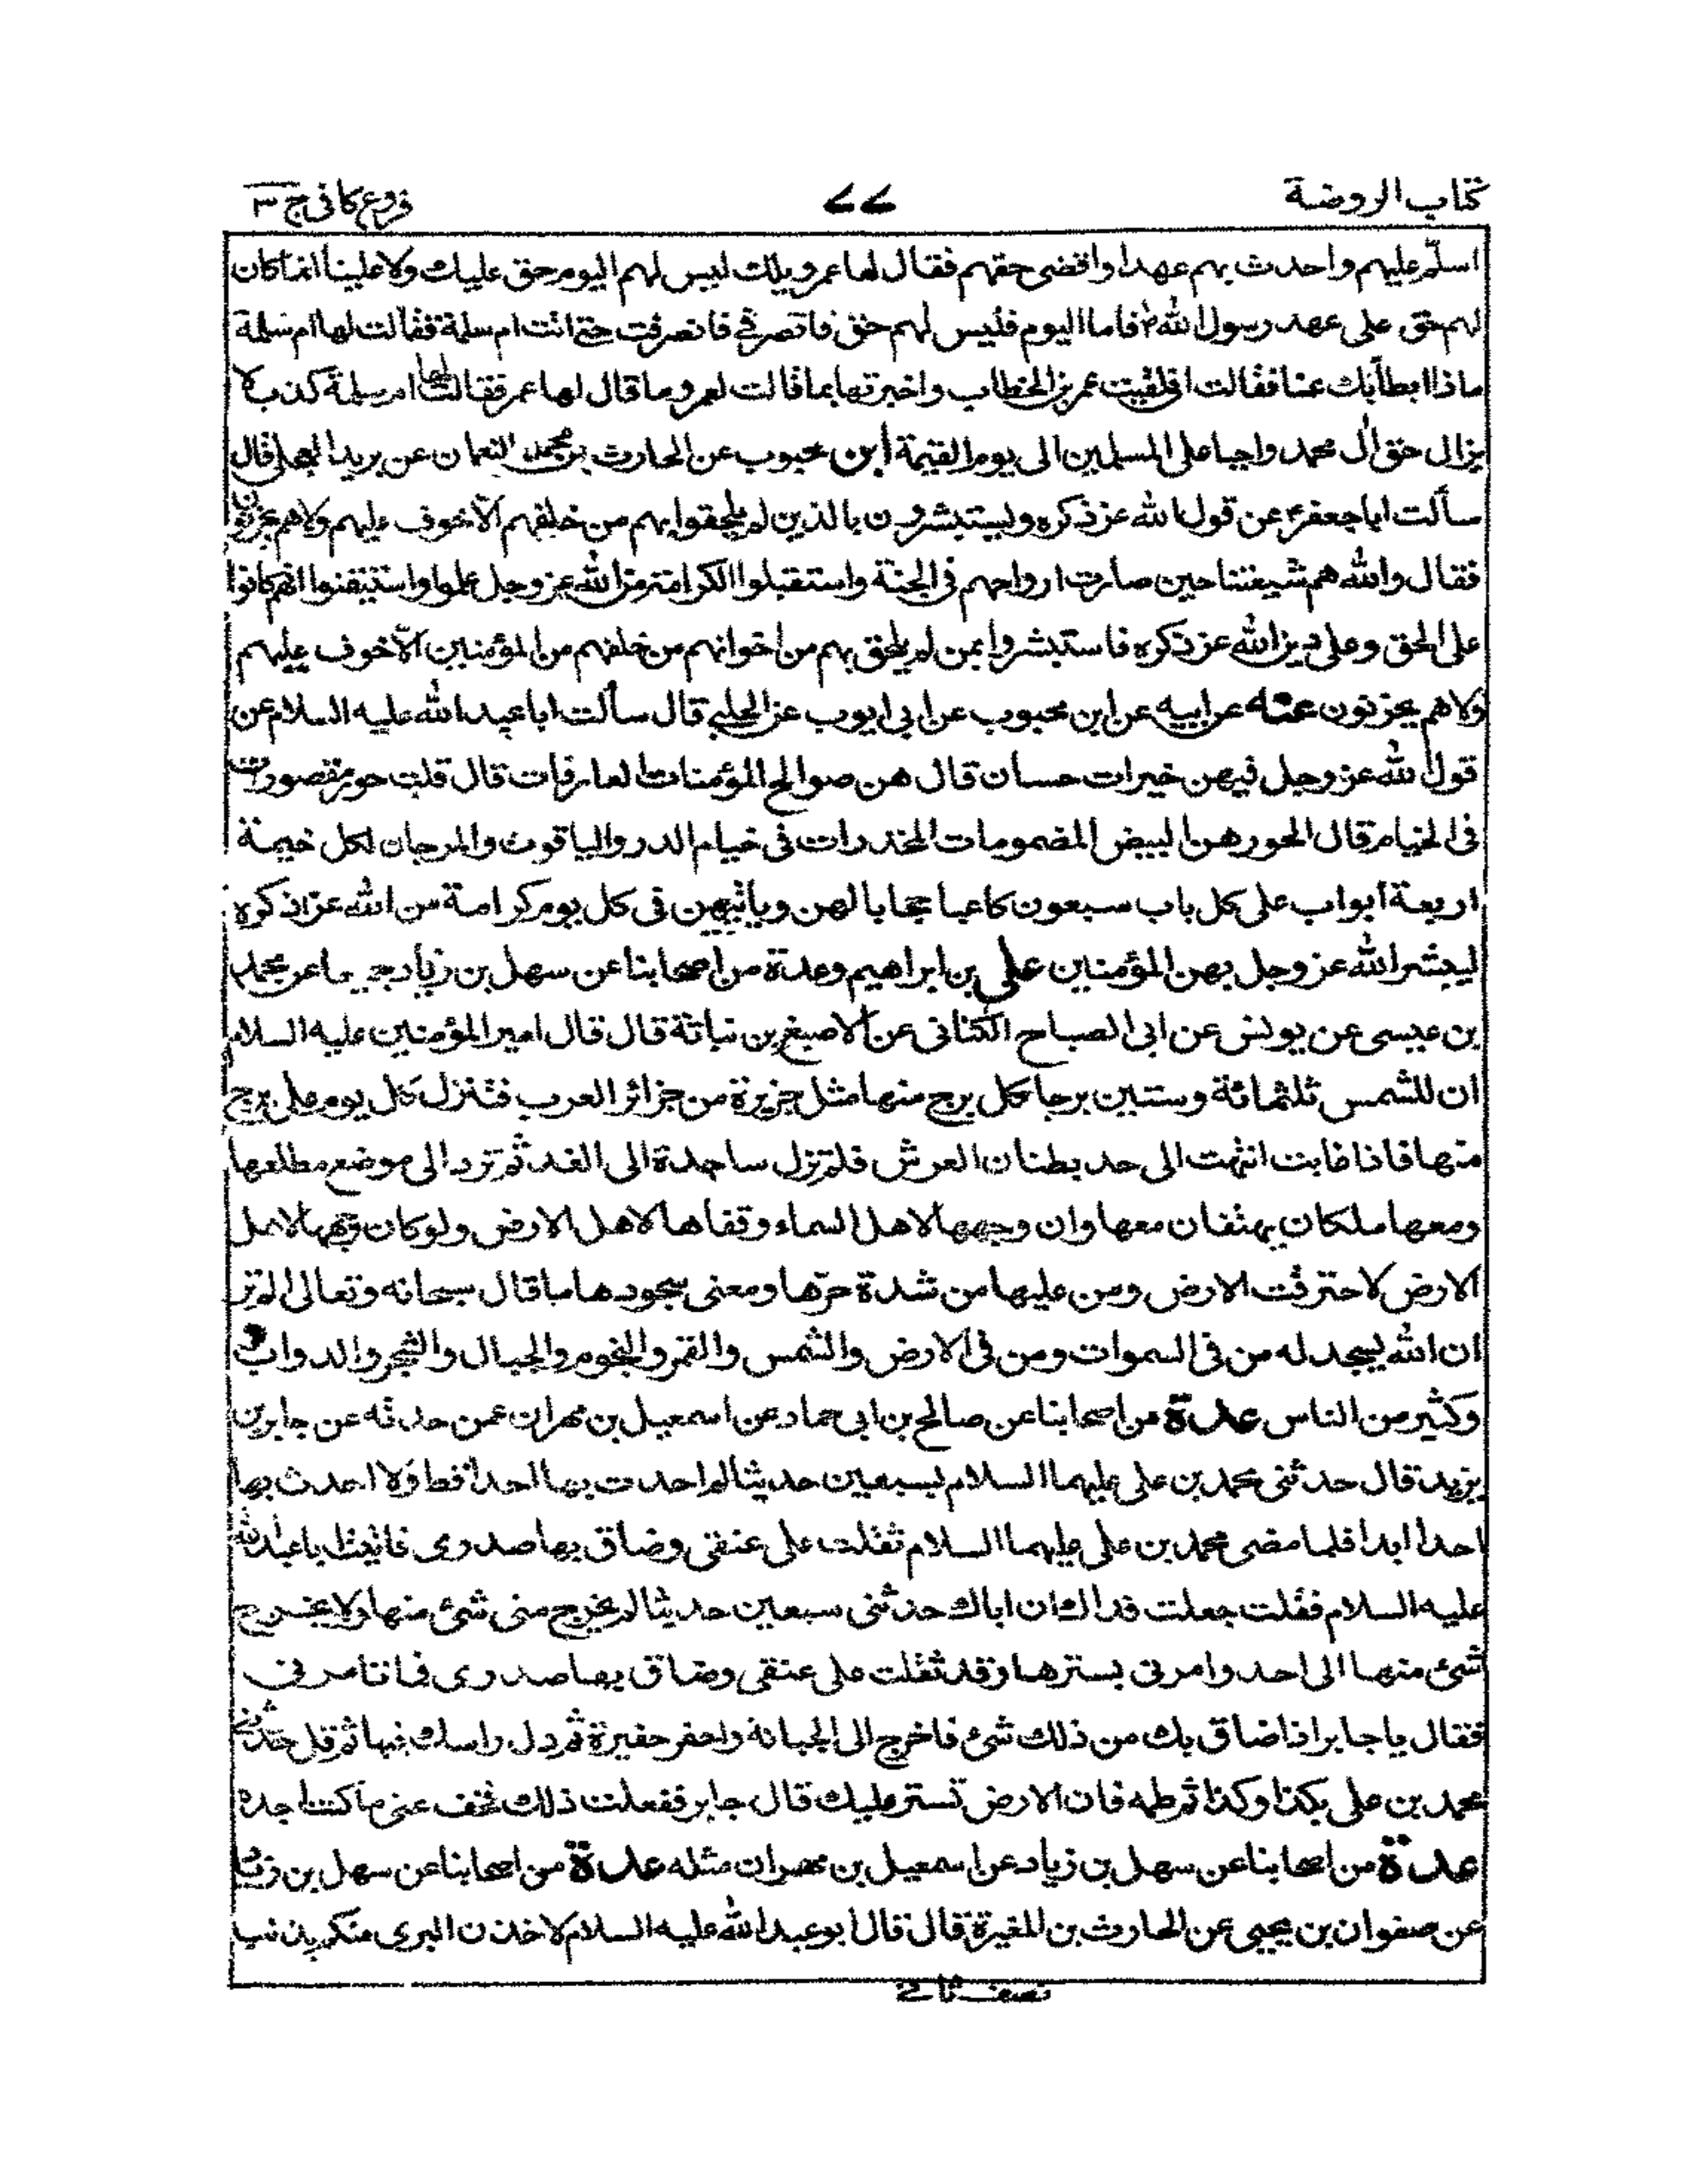 كتاب الروضة
٧٧
فروع كافى ج ٣
اسلّم عليهم واحدث بهم عهدا واقضى حقهم فقال لها عمر ويلك ليس لهم اليوم حق عليك ولا علينا انما كان
لهم حق على عهد رسول الله ص فاما اليوم فليس لهم حق فانصرفى فانصرفت حتى اتت ام سلمة فقالت لها ام سلمة
ماذا ابطأبك عنا فقالت انى لقيت عمر بن الخطاب واخبرتها بما قالت لعمر وما قال لها عمر فقالت لها ام سلمة كذب لا
يزال حق ال محمد واجبا على المسلمين الى يوم القيمة ابن محبوب عن الحارث بن محمد بن النعمان عن بريد العجلى قال
سألت ابا جعفر ع عن قول الله عز ذكره ويستبشرون بالذين لم يلحقوا بهم من خلفهم الا خوف عليهم ولا هم يحزنون
فقال والله هم شيعتنا حين صارت ارواحهم فى الجنة واستقبلوا الكرامة من الله عز وجل علموا واستيقنوا انهم كانوا
على الحق وعلى دين الله عز ذكره فاستبشروا بمن لم يلحق بهم من اخوانهم من خلفهم من المؤمنين الا خوف عليهم
ولا هم يحزنون عنه عن ابيه عن ابن محبوب عن ابى ايوب عن الحلبى قال سألت ابا عبد الله عليه السلام عن
قول الله عز وجل فيهن خيرات حسان قال هن صوالح المؤمنات العارفات قال قلت حور مقصورات
فى الخيام قال الحور هن البيض المضمومات المخدرات فى خيام الدر والياقوت والمرجان لكل خيمة
اربعة ابواب على كل باب سبعون كاعبا حجابا لهن وياتيهن فى كل يوم كرامة من الله عز ذكره
ليبشر الله عز وجل بهن المؤمنين على بن ابراهيم وعدة من اصحابنا عن سهل بن زياد جميعا عن محمد
بن عيسى عن يونس عن ابى الصباح الكنانى عن الاصبغ بن نباتة قال قال امير المؤمنين عليه السلام
ان للشمس ثلثمائة وستين برجا كل برج منها مثل جزيرة من جزائر العرب فتنزل كل يوم على برج
منها فاذا غابت انتهت الى حد بطنان العرش فلم تزل ساجدة الى الغد ثم ترد الى موضع مطلعها
ومعها ملكان يهتفان معها وان وجهها لاهل السماء وقفاها لاهل الارض ولو كان وجهها لاهل
الارض لاحترقت الارض ومن عليها من شدة حرّها ومعنى سجودها ما قال سبحانه وتعالى الم تر
ان الله يسجد له من فى السموات ومن فى الارض والشمس والقمر والنجوم والجبال والشجر والدواب
وكثير من الناس عدة من اصحابنا عن صالح بن ابى حماد عن اسمعيل بن مهران عمن حدثه عن جابر بن
يزيد قال حدثنى محمد بن على عليهما السلام بسبعين حديثا لم احدث بها احدا قط ولا احدث بها
احدا ابدا فلما مضى محمد بن على عليهما السلام ثقلت على عنقى وضاق بها صدرى فاتيت ابا عبد الله
عليه السلام فقلت جعلت فداك ان اباك حدثنى سبعين حديثا لم يخرج منى شئ منها ولا يخرج
شئ منها الى احد وامرنى بسترها وقد ثقلت على عنقى وضاق بها صدرى فما تامرنى
فقال يا جابر اذا ضاق بك من ذلك شئ فاخرج الى الجبانة واحفر حفيرة ثم دل راسك فيها ثم قل حدثنى
محمد بن على بكذا وكذا ثم طمه فان الارض تستر عليك قال جابر ففعلت ذلك فخف عنى ما كنت اجده
عدة من اصحابنا عن سهل بن زياد عن اسمعيل بن مهران مثله عدة من اصحابنا عن سهل بن زياد
عن صفوان بن يحيى عن الحارث بن المغيرة قال قال ابو عبد الله عليه السلام لاخذن البرى منكم بذنب
نصف ثانى